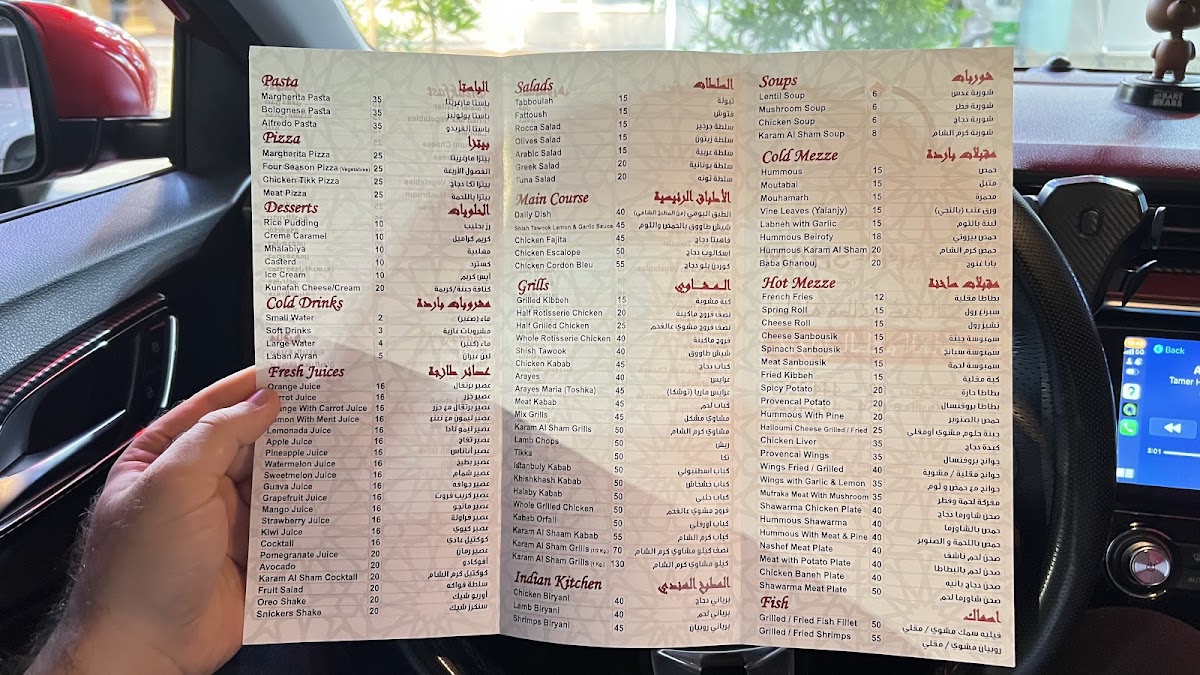 Pasta الباستا
Margherita Pasta 35 باستا مارغريتا
Bolognese Pasta 35 باستا بولونيز
Alfredo Pasta 35 باستا الفريدو
Pizza بيتزا
Margherita Pizza 25 بيتزا مارغريتا
Four Season Pizza (Vegetables) 25 الفصول الأربعة
Chicken Tikk Pizza 25 بيتزا تكا دجاج
Meat Pizza 25 بيتزا باللحمة
Desserts الحلويات
Rice Pudding 10 رز بحليب
Creme Caramel 10 كريم كراميل
Mhalabiya 10 مهلبية
Casterd 10 كسترد
Ice Cream 10 آيس كريم
Kunafah Cheese/Cream 10 كنافة جبنة/كريمة
Cold Drinks مشروبات باردة
Small Water 2 ماء (صغير)
Soft Drinks 3 مشروبات غازية
Large Water 4 ماء (كبير)
Laban Ayran 5 لبن عيران
Fresh Juices عصائر طازجة
Orange Juice 16 عصير برتقال
rrot Juice 16 عصير جزر
nge With Carrot Juice 16 عصير برتقال مع جزر
mon With Ment Juice 16 عصير ليمون مع نعنع
Lemonada Juice 16 عصير ليمو نادا
Apple Juice 16 عصير تفاح
Pineapple Juice 16 عصير أناناس
Watermelon Juice 16 عصير بطيخ
Sweetmelon Juice 16 عصير شمام
Guava Juice 16 عصير جوافه
Grapefruit Juice 16 عصير كريب فروت
Mango Juice 16 عصير مانجو
Strawberry Juice 16 عصير فراولة
Kiwi Juice 16 عصير كيوي
Cocktail 16 كوكتيل عادي
Pomegranate Juice 20 عصير رمان
Avocado 20 أفوكادو
Karam Al Sham Cocktail 20 كوكتيل كرم الشام
Fruit Salad 20 سلطة فواكه
Oreo Shake 20 أوريو شيك
Snickers Shake 20 سنكرز شيك
Salads السلطات
Tabboulah 15 تبولة
Fattoush 15 فتوش
Rocca Salad 15 سلطة جرجير
Olives Salad 15 سلطة زيتون
Arabic Salad 15 سلطة عربية
Greek Salad 20 سلطة يونانية
Tuna Salad 20 سلطة تونه
Main Course الأطباق الرئيسية
Daily Dish 40 الطبق اليومي (من المطبخ الشامي)
Shish Tawook Lemon & Garlic Sauce 45 شيش طاووق بالحمض والثوم
Chicken Fajita 45 فاهيتا دجاج
Chicken Escalope 50 اسكالوب دجاج
Chicken Cordon Bleu 55 كوردن بلو دجاج
Grills المشاوي
Grilled Kibbeh 15 كبة مشوية
Half Rotisserie Chicken 20 نصف فروج ماكينة
Half Grilled Chicken 25 نصف فروج مشوي عالفحم
Whole Rotisserie Chicken 40 فروج ماكينة
Shish Tawook 40 شيش طاووق
Chicken Kabab 40 كباب دجاج
Arayes 40 عرايس
Arayes Maria (Toshka) 45 عرايس ماريا (توشكا)
Meat Kabab 45 كباب لحم
Mix Grills 45 مشاوي مشكل
Karam Al Sham Grills 50 مشاوي كرم الشام
Lamb Chops 50 ريش
Tikka 50 تكا
Istanbuly Kabab 50 كباب اسطنبولي
Khishkhash Kabab 50 كباب خشخاش
Halaby Kabab 50 كباب حلبي
Whole Grilled Chicken 50 فروج مشوي عالفحم
Kabab Orfali 50 كباب اورفلي
Karam Al Shaam Kabab 55 كباب كرم الشام
Karam Al Sham Grills (1/2 Kg) 70 نصف كيلو مشاوي كرم الشام
Karam Al Sham Grills (1 Kg) 130 كيلو مشاوي كرم الشام
Indian Kitchen المطبخ الهندي
Chicken Biryani 40 برياني دجاج
Lamb Biryani 40 برياني لحم
Shrimps Biryani 45 برياني روبيان
Soups شوربات
Lentil Soup 6 شوربة عدس
Mushroom Soup 6 شوربة فطر
Chicken Soup 6 شوربة دجاج
Karam Al Sham Soup 8 شوربة كرم الشام
Cold Mezze مقبلات باردة
Hummous 15 حمص
Moutabal 15 متبل
Mouhamarh 15 محمرة
Vine Leaves (Yalanjy) 15 ورق عنب (يالنجي)
Labneh with Garlic 15 لبنة بالثوم
Hummous Beiroty 18 حمص بيروتي
Hummous Karam Al Sham 20 حمص كرم الشام
Baba Ghanouj 20 بابا غنوج
Hot Mezze مقبلات ساخنة
French Fries 12 بطاطا مقلية
Spring Roll 15 سبرنغ رول
Cheese Roll 15 تشيز رول
Cheese Sanbousik 15 سمبوسة جبنة
Spinach Sanbousik 15 سمبوسة سبانخ
Meat Sanbousik 15 سمبوسة لحمة
Fried Kibbeh 15 كبة مقلية
Spicy Potato 20 بطاطا حارة
Provencal Potato 20 بطاطا بروفنسال
Hummous With Pine 20 حمص بالصنوبر
Halloumi Cheese Grilled / Fried 25 جبنة حلوم مشوي أومقلي
Chicken Liver 35
Provencal Wings 35 جوانح بروفنسال
Wings Fried / Grilled 40 جوانح مقلية / مشوية
Wings with Garlic & Lemon 35 جوانح مع حمض و ثوم
Mufraka Meat With Mushroom 35 مفركة لحمة وفطر
Shawarma Chicken Plate 40 صحن شاورما دجاج
Hummous Shawarma 40 حمص بالشاورما
Hummous With Meat & Pine 40 حمص باللحمة و الصنوبر
Nashef Meat Plate 40 صحن لحم ناشف
Meat with Potato Plate 40 صحن لحم بالبطاطا
Chicken Baneh Plate 40 صحن دجاج بانيه
Shawarma Meat Plate 50 صحن شاورما لحم
Fish اسماك
Grilled / Fried Fish Fillet 50 فيليه سمك مشوي / مقلي
Grilled / Fried Shrimps 55 روبيان مشوي / مقلي
Back
Tamer H
3:01